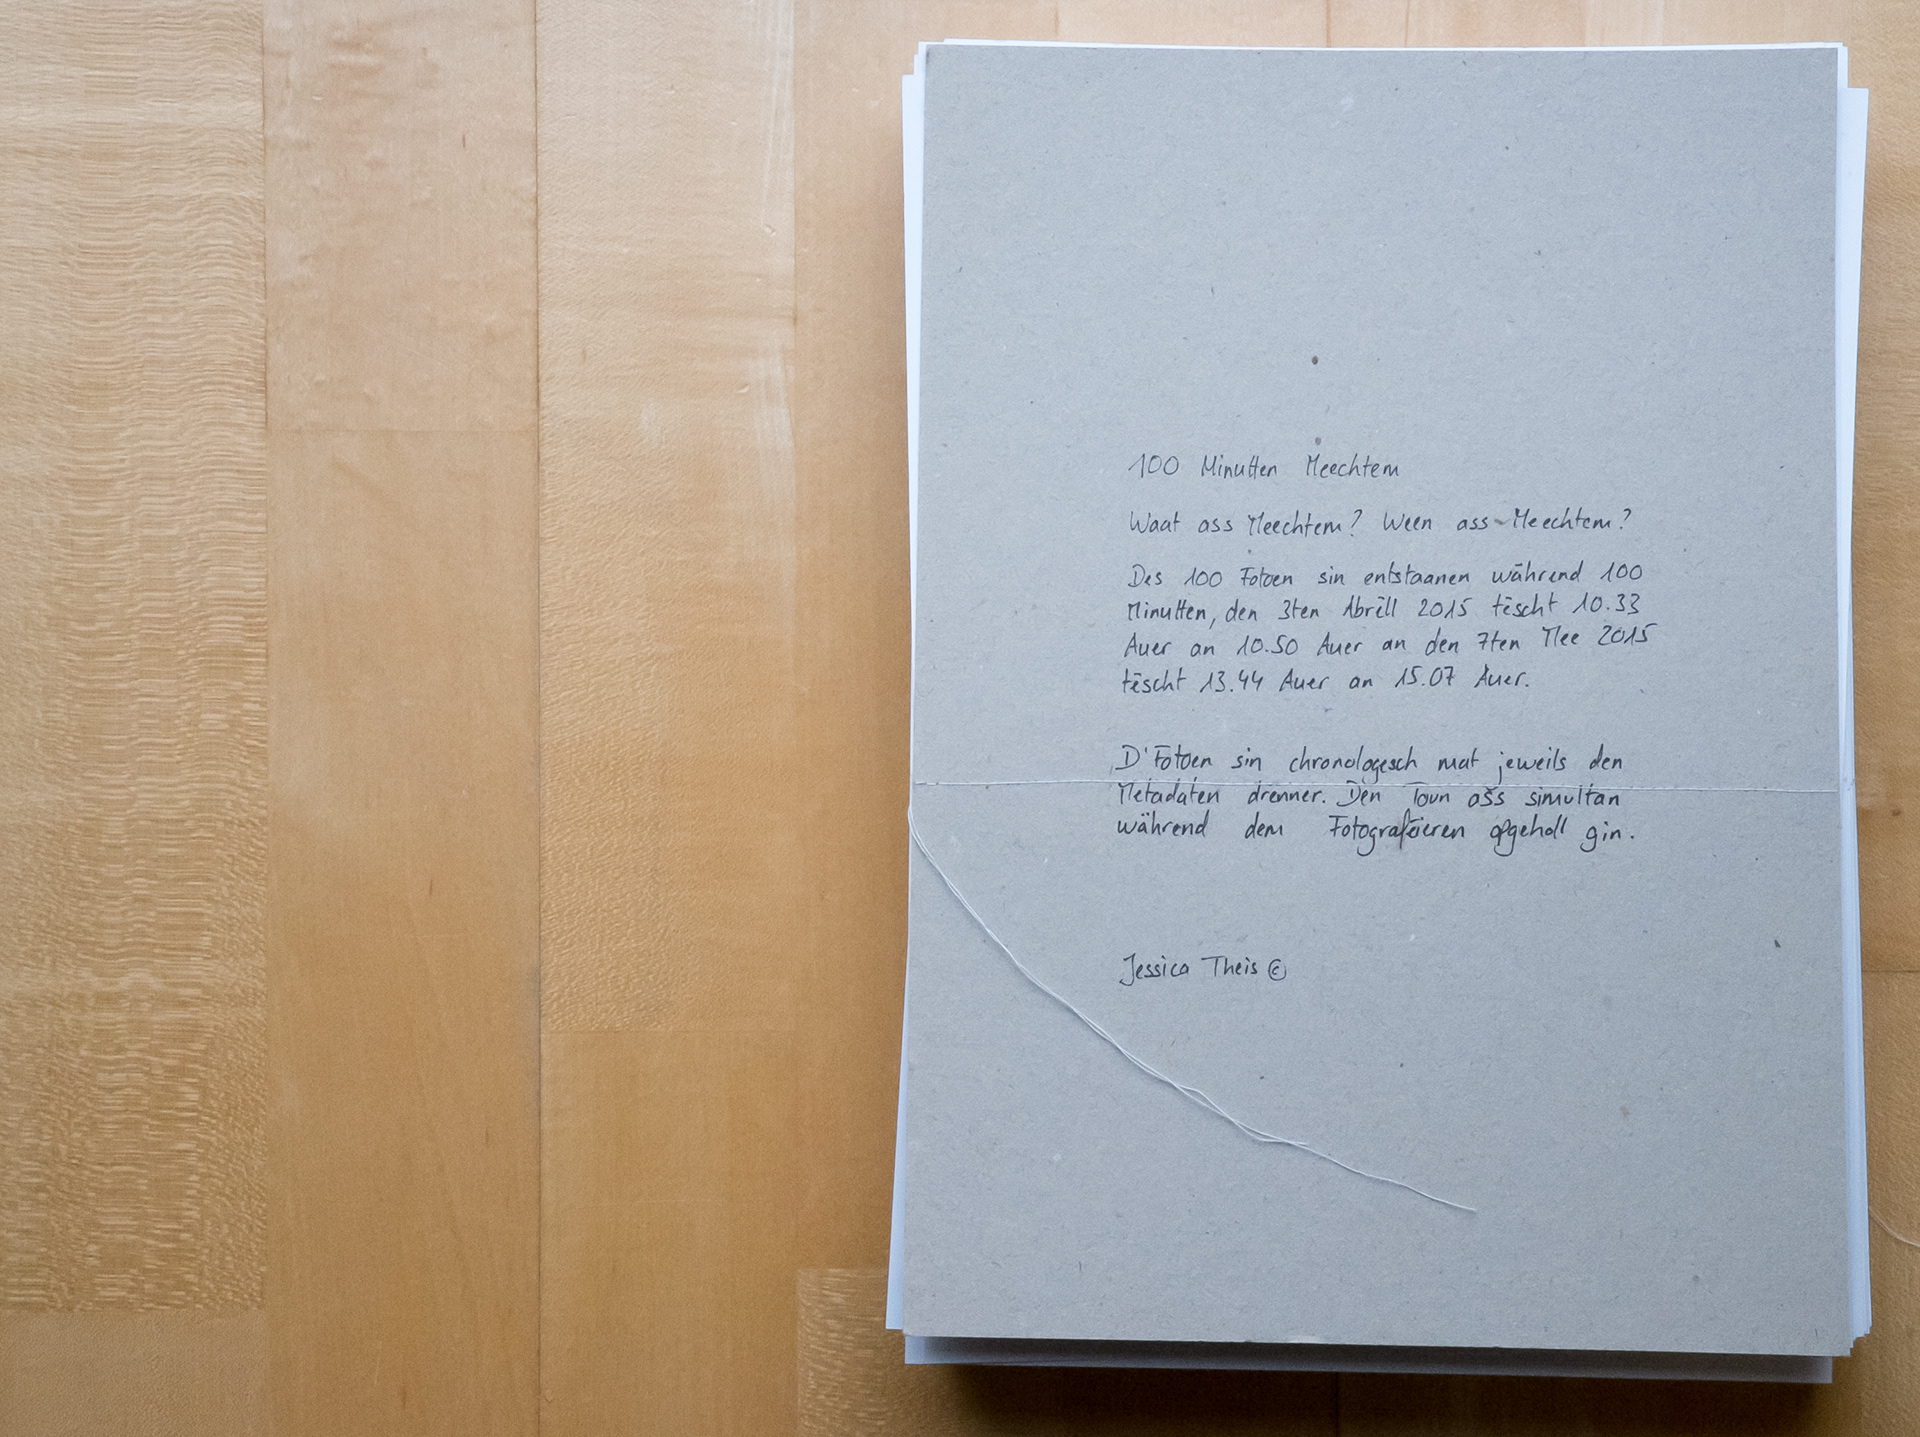 100 Minutten Meechtem
Waat ass Meechtem? Ween ass Meechtem?
Des 100 Fotoen sin entstaanen während 100
Minutten, den 3ten Abrëll 2015 tëscht 10.33
Auer an 10.50 Auer an den 7ten Mee 2015
tëscht 13.44 Auer an 15.07 Auer.
D'Fotoen sin chronologesch mat jeweils den
Metadaten drenner. Den Toun ass simultan
während dem Fotograféieren opgeholl gin.
Jessica Theis ©